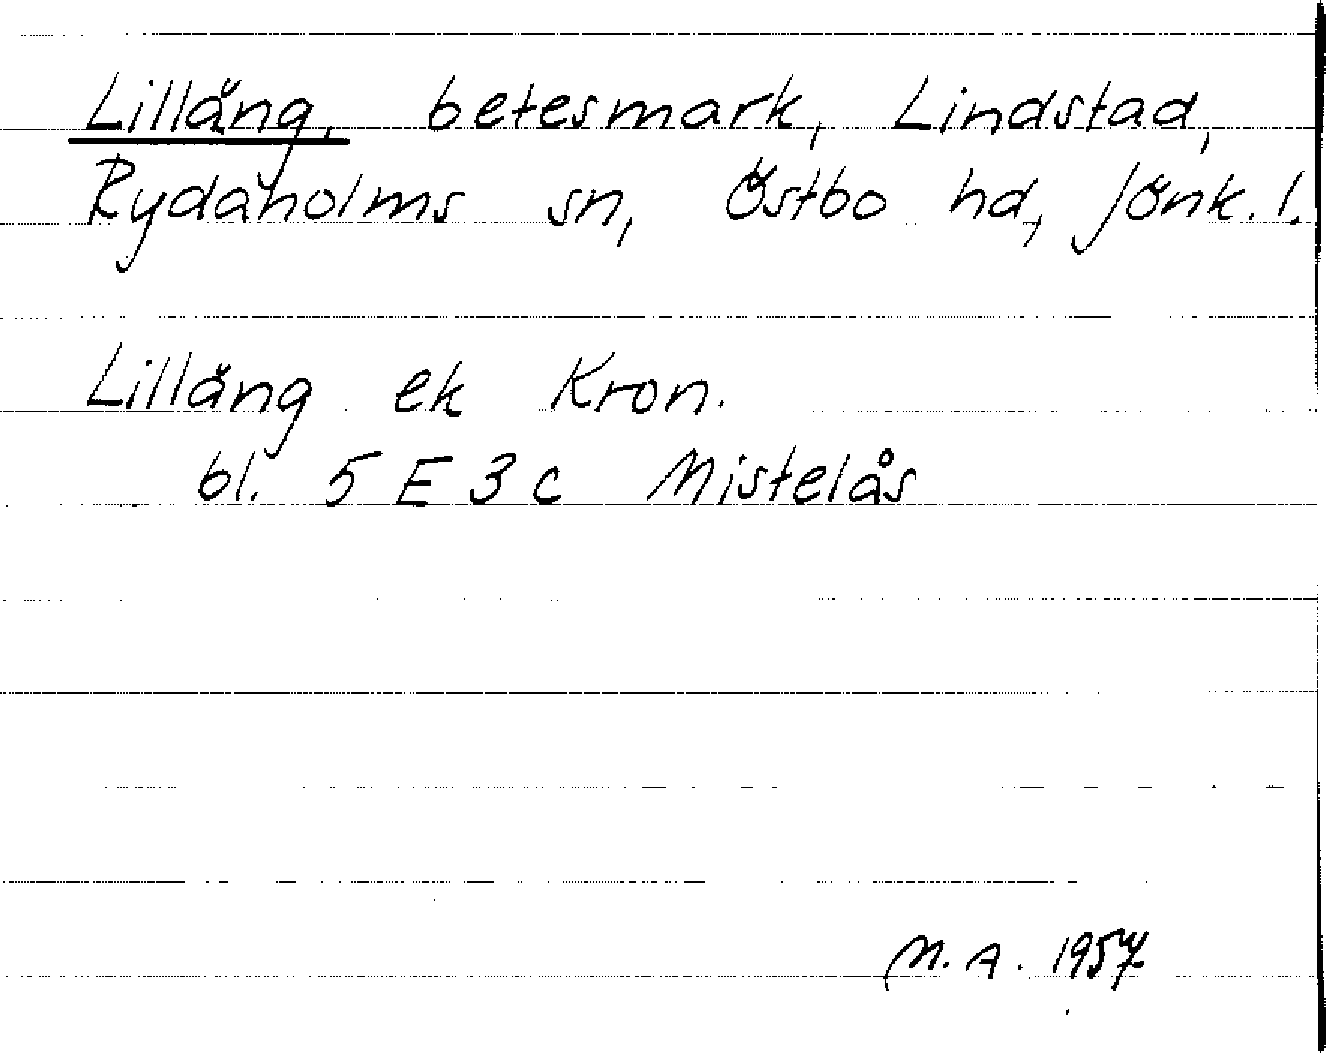 Lilläng, betesmark, Lindstad,
Rydaholms sn, Östbo hd, Jönk. l.
Lilläng ek Kron.
bl. 5 E 3 c Mistelås
M. A. 1957